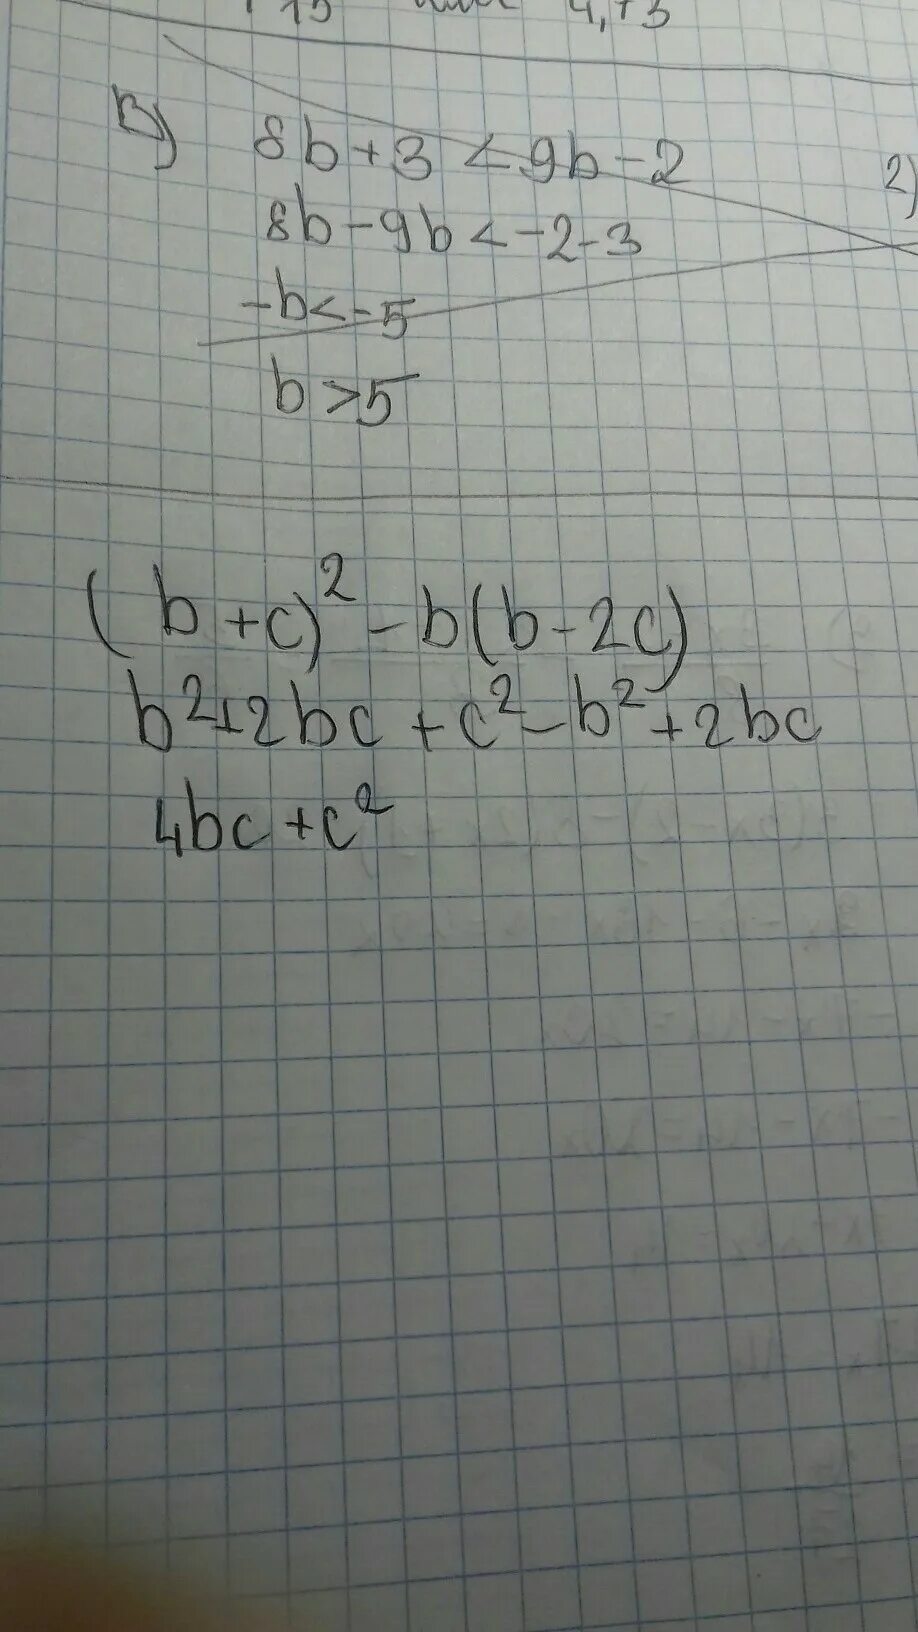 в) 8b + 3 < 9b - 2
2)
8b - 9b < -2 - 3
-b < -5
b > 5
(b + c)² - b(b - 2c)
b² + 2bc + c² - b² + 2bc
4bc + c²